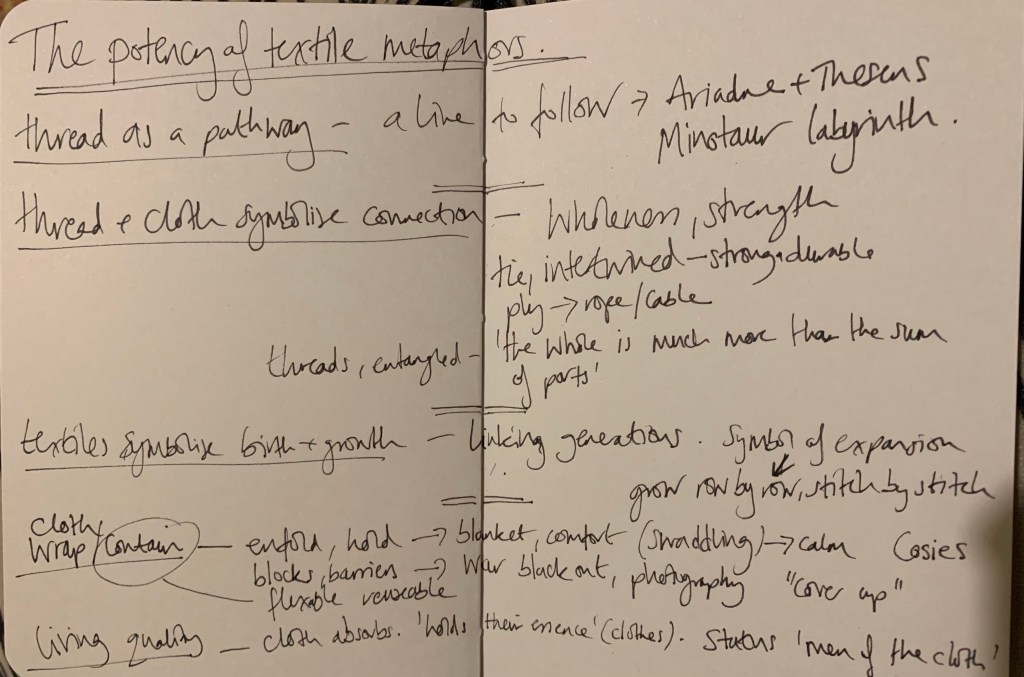 The potency of textile metaphors.
thread as a pathway - a line to follow → Ariadne + Theseus
Minotaur labyrinth.
thread + cloth symbolise connection - Wholeness, strength
tie, intertwined - strong + durable
ply → rope/cable
threads, entangled - 'the whole is much more than the sum
of parts'
textiles symbolise birth + growth - linking generations. Symbol of expansion
grow row by row, stitch by stitch
cloth
wrap/contain - enfold, hold → blanket, comfort (swaddling) → calm Cosies
blocks, barriers → War blackout, photography "cover up"
flexable reuseable
living quality - cloth absorbs. 'holds their essence' (clothes). Status 'men of the cloth'